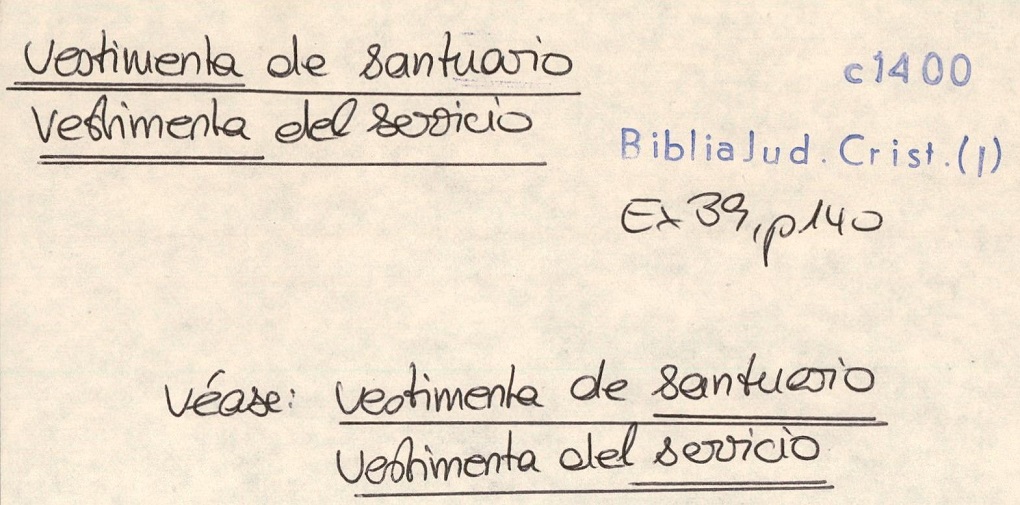 vestimenta de santuario
vestimenta del servicio
c1400
Biblia Jud. Crist. (I)
Ex 39, p 140
véase: vestimenta de santuario
vestimenta del servicio